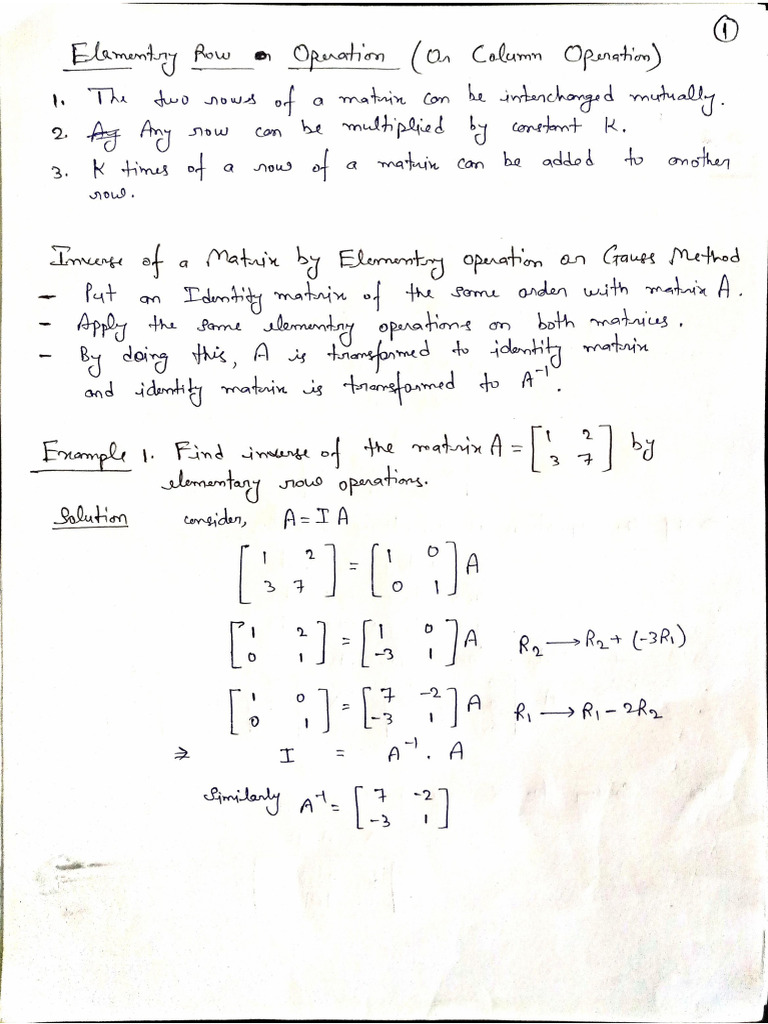 ①
Elementry Row Operation (Or Column Operation)
1. The two rows of a matrix can be interchanged mutually.
2. Any row can be multiplied by constant K.
3. K times of a row of a matrix can be added to another
row.
Inverse of a Matrix by Elementry operation or Gauss Method
- Put an Identity matrix of the same order with matrix A.
- Apply the same elementry operations on both matrices.
- By doing this, A is transformed to identity matrix
and identity matrix is transformed to A⁻¹.
Example 1. Find inverse of the matrix A = [1 2; 3 7] by
elementary row operations.
Solution consider, A = I A
[1 2; 3 7] = [1 0; 0 1] A
[1 2; 0 1] = [1 0; -3 1] A R₂ → R₂ + (-3R₁)
[1 0; 0 1] = [7 -2; -3 1] A R₁ → R₁ - 2R₂
⇒ I = A⁻¹. A
Similarly A⁻¹ = [7 -2; -3 1]